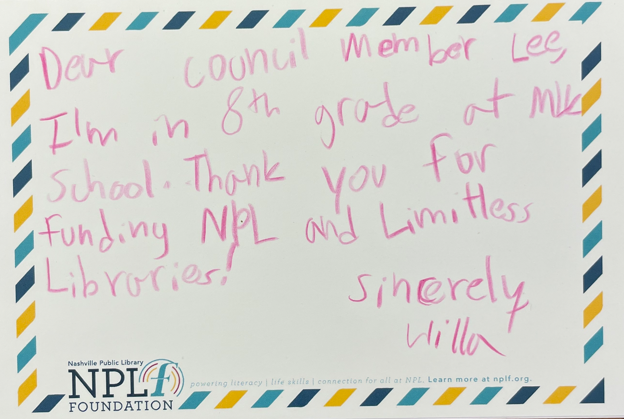 Dear Council Member Lee,
I'm in 8th grade at MLK
School. Thank you for
funding NPL and Limitless
Libraries!
Sincerely
Willa
Nashville Public Library
NPLf
FOUNDATION
powering literacy | life skills | connection for all at NPL. Learn more at nplf.org.